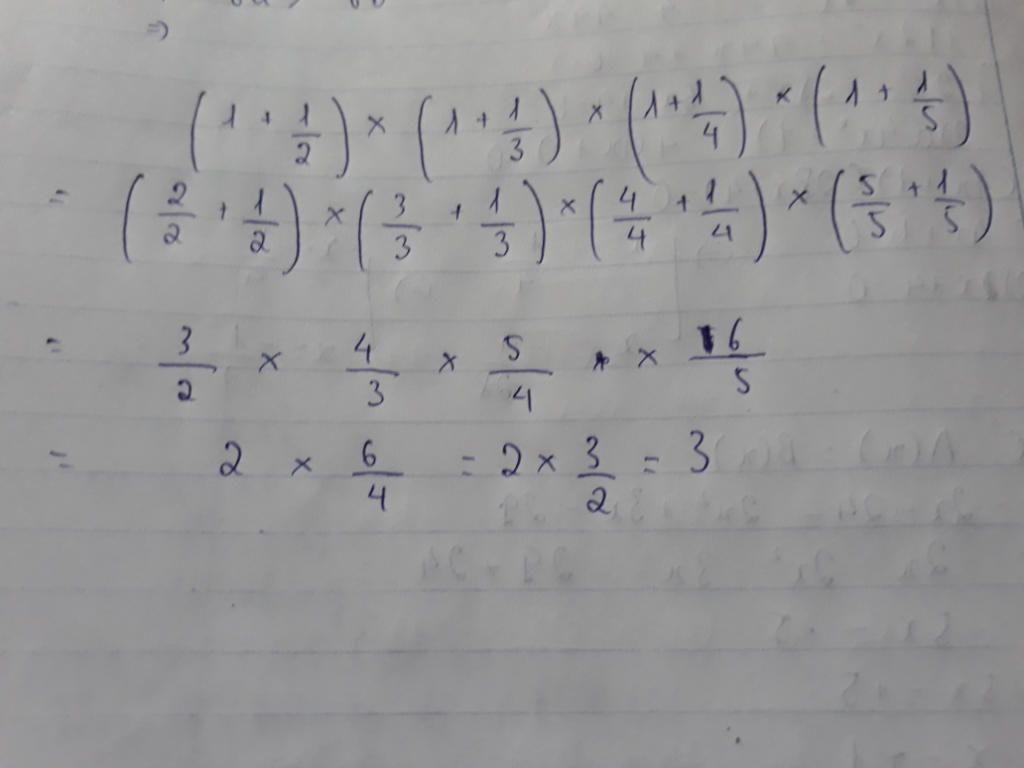 ⇒
(1 + 1/2) × (1 + 1/3) × (1 + 1/4) × (1 + 1/5)
= (2/2 + 1/2) × (3/3 + 1/3) × (4/4 + 1/4) × (5/5 + 1/5)
= 3/2 × 4/3 × 5/4 × 6/5
= 2 × 6/4 = 2 × 3/2 = 3